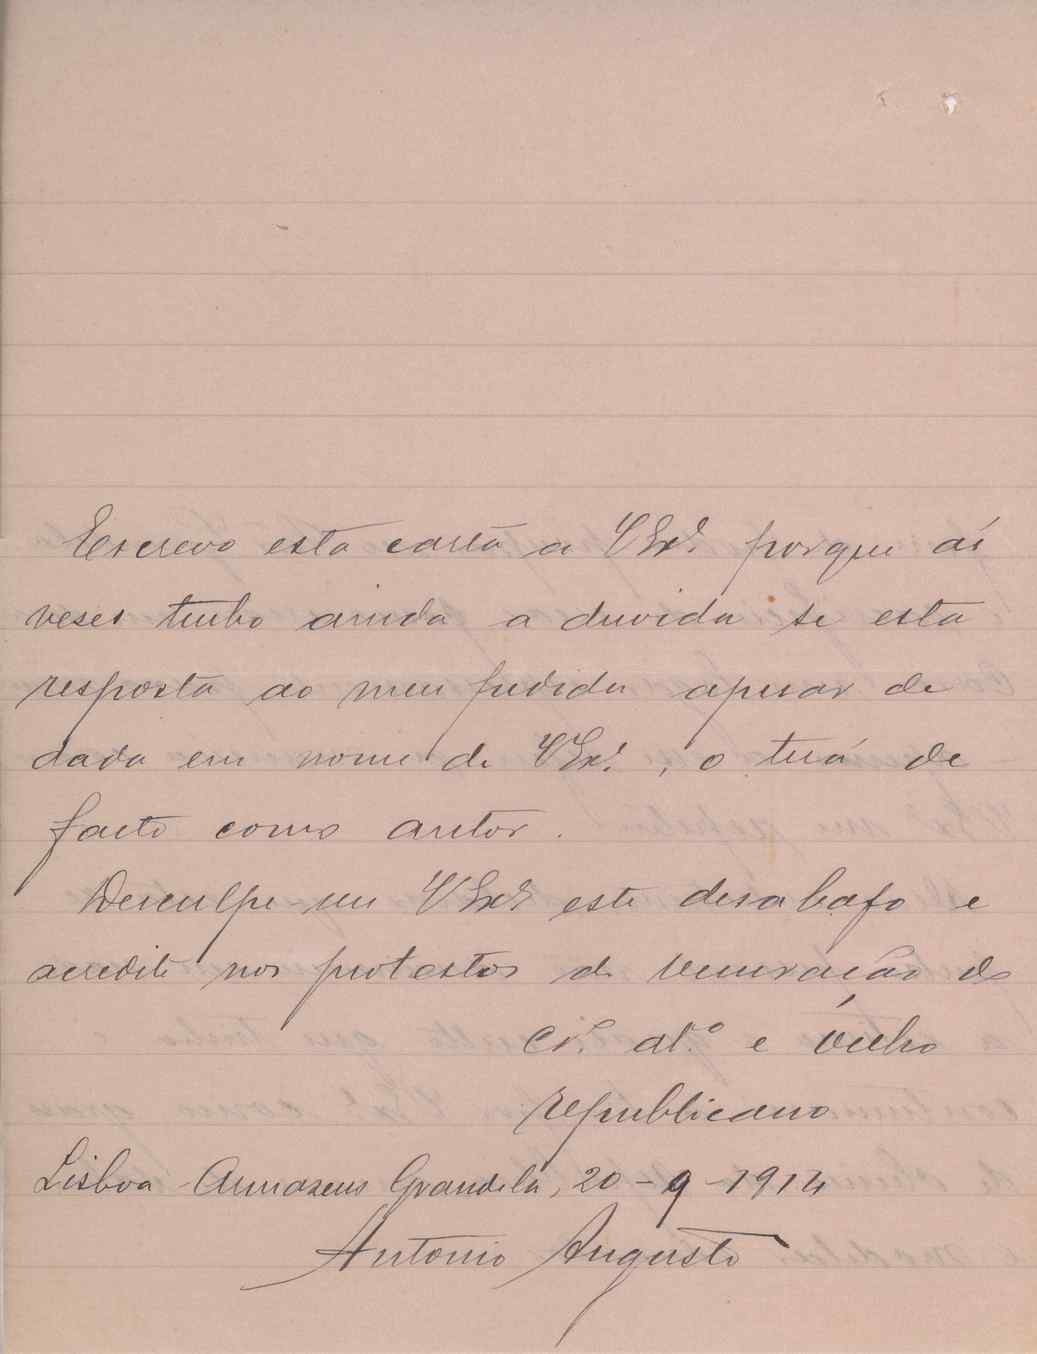 Escrevo esta carta a V Exª. porque ás
veses tenho ainda a duvida se esta
resposta ao meu pedido apesar de
dada em nome de V Exª., o terá de
facto como autor.
Desculpe-me V Exª este desabafo e
acredite nos protestos de veneração do
Crº. atº. e velho
republicano
Lisboa - Armazens Grandela, 20-9-1914
Antonio Augusto